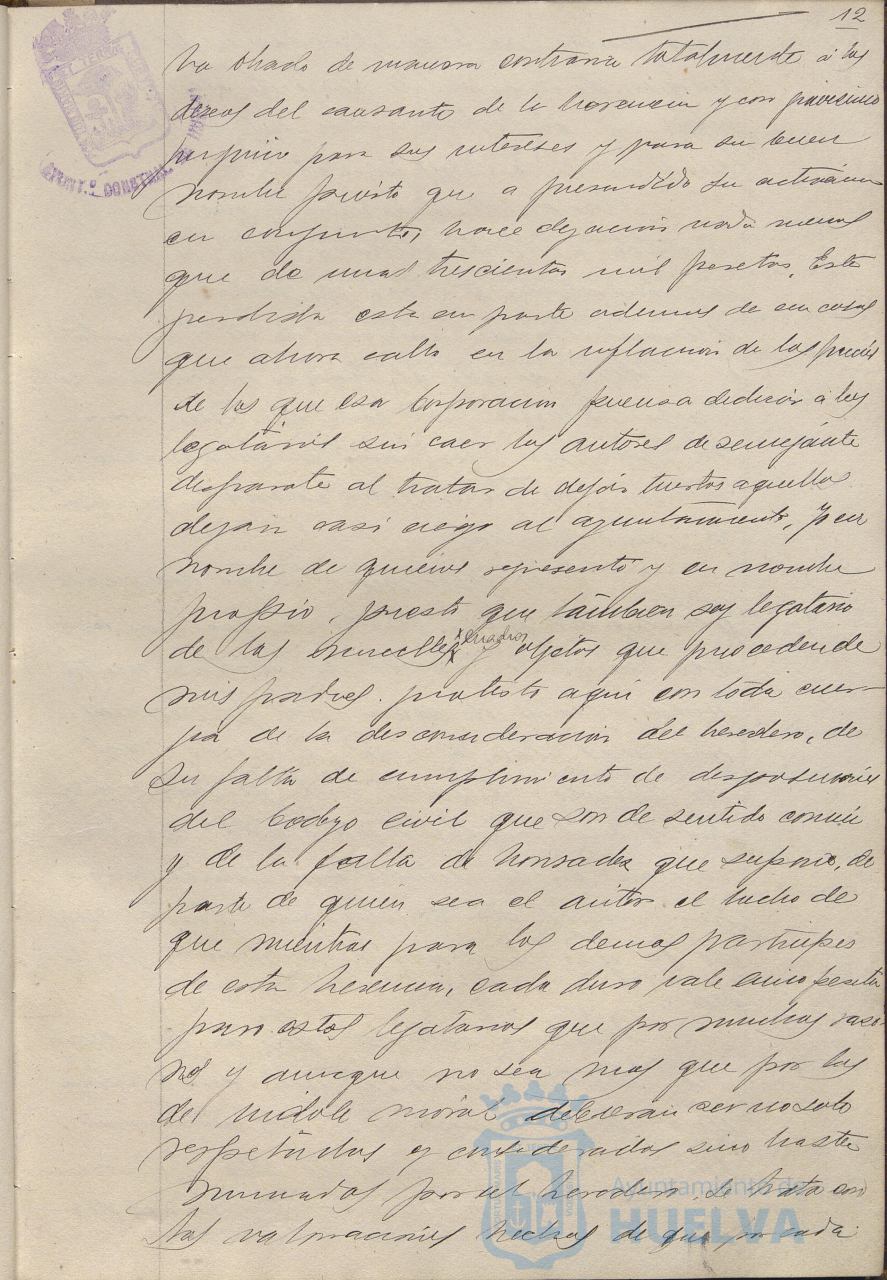 12
ha obrado de manera contraria totalmente á los
deseos del causante de la herencia y con gravísimo
perjuicio para sus intereses y para su buen
nombre puesto que a presidido su actuación
en conjunto, hace dejacion nada menos
que de unas trescientas mil pesetas. Esta
perdida esta en parte ademas de en cosas
que ahora callo en la inflacion de los precios
de los que esa Corporacion piensa dedicar á los
legatarios sin caer los autores de semejante
disparate al tratar de dejar tuertos aquellos
dejan casi ciego al ayuntamiento. Y en
nombre de quienes represento y en nombre
propio, puesto que tambien soy legatario
de los muebles cuadros y objetos que proceden de
mis padres. protesto aqui con toda ener-
gia de la desconsideracion del heredero, de
su falta de cumplimiento de disposiciones
del Codigo civil que son de sentido comun
y de la falta de honradez que supone, de
parte de quien sea el autor el hecho de
que mientras para los demas participes
de esta herencia, cada duro vale cinco pesetas
para estos legatarios que por muchas razo-
nes y aunque no sea mas que por las
de indole moral debieran ser no solo
respetados y considerados sino hasta
mimados por el heredero, se trata con
las valoraciones hechas de que cada
AYUNT.º CONSTNAL
Ayuntamiento de
HUELVA